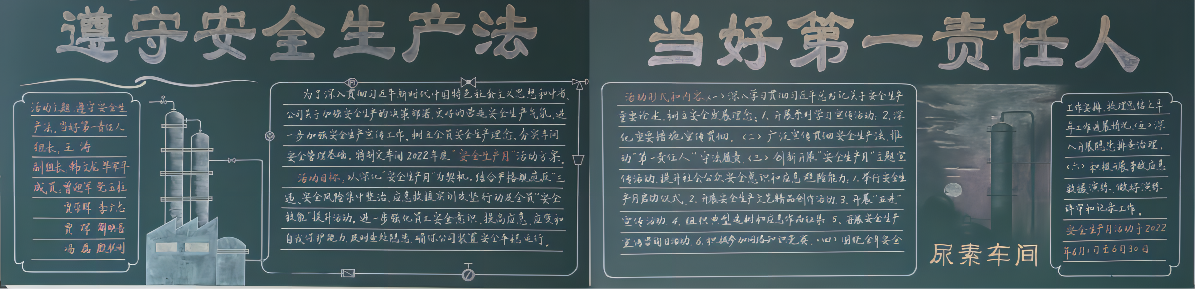 遵守安全生产法
当好第一责任人
活动主题:遵守安全生
产法,当好第一责任人
组长:王涛
副组长:
成员:
为了深入贯彻习近平新时代中国特色社会主义思想和中省、
公司关于加强安全生产的决策部署,更好的营造安全生产气氛,进
一步加强安全生产宣传工作,树立企员安全生产理念,夯实车间
安全管理基础,特制定车间2022年度“安全生产月”活动方案。
活动目标:以深化“安全生产月”为契机,结合严格规范反“三
违”、安全风险集中整治、应急救援实训攻坚行动及全员“安全
技能”提升活动,进一步强化员工安全意识,提高应急、应变和
自我防护能力,及时查处隐患,确保公司装置安全平稳运行。
活动形式和内容(一)深入学习贯彻习近平总书记关于安全生产
重要论述,树立安全发展理念:1.开展系列学习宣传活动。2.深
化重要措施宣传贯彻。(二)广泛宣传贯彻安全生产法,推
动“第一责任人”守法履责。(三)创新开展“安全生产月”主题宣
传活动,提升社会公众安全意识和应急避险能力:1.举行安全生
产月启动仪式。2.开展安全生产文艺精品创作活动。3.开展“五进”
宣传活动。4.组织典型案例和应急作品征集。5.开展安全生产
宣传咨询日活动。6.积极参加网络知识竞赛。(四)围绕全年安全
工作安排,梳理总结上半
年工作进展情况。(五)深
入开展隐患排查治理。
(六)积极开展事故应急
救援演练,做好演练
评审和记录工作。
安全生产月活动于2022
年6月1日至6月30日
尿素车间